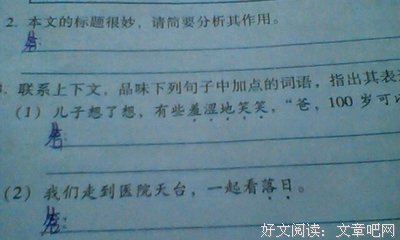 2. 本文的标题很妙,请简要分析其作用。
答:
联系上下文,品味下列句子中加点的词语,指出其表
(1) 儿子想了想,有些羞涩地笑笑,“爸,100 岁可
答:
(2) 我们走到医院天台,一起看落日。
答:
好文阅读:文章吧网